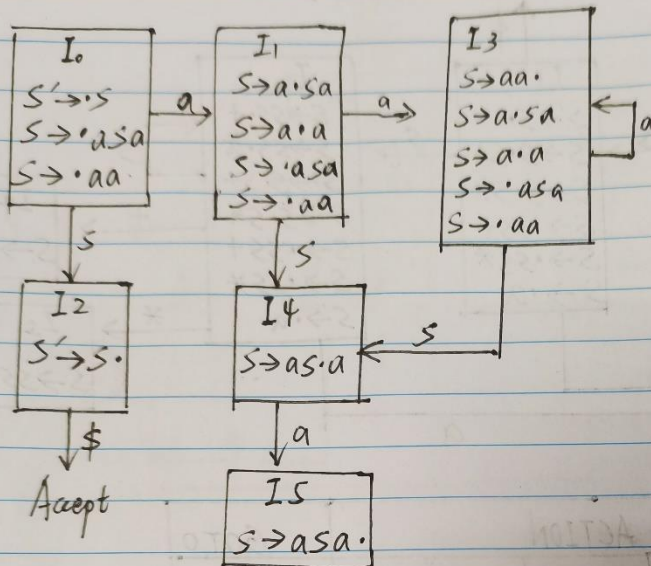 I₀
S'→·S
S→·aSa
S→·aa
a
I₁
S→a·Sa
S→a·a
S→·aSa
S→·aa
a
I3
S→aa·
S→a·Sa
S→a·a
S→·aSa
S→·aa
a
S
S
S
I2
S'→S·
I4
S→aS·a
$
a
Accept
I5
S→aSa·